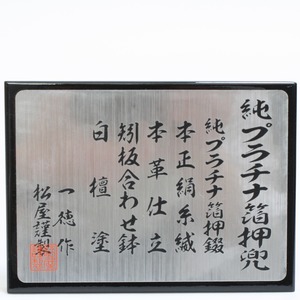 純プラチナ箔押兜
純プラチナ箔押錣
本正絹糸縅
本革仕立
矧板合わせ鉢
白檀塗
一徳作
松屋謹製